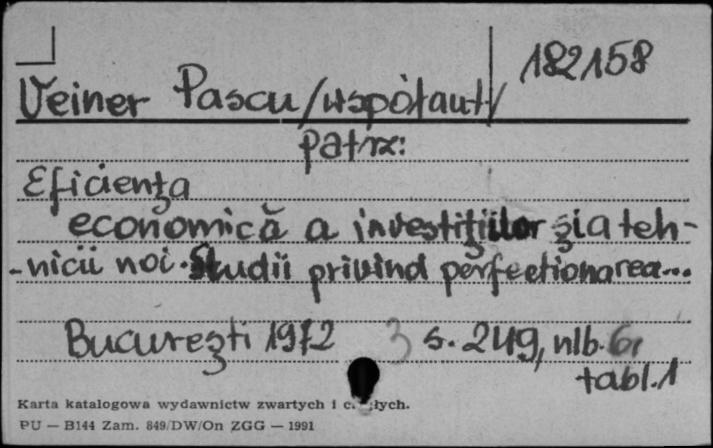 182158
Veiner Pascu /współaut/
patrz:
Eficienţa
economică a investiţiilor şi a teh-
-nicii noi. Studii privind perfectionarea...
Bucureşti 1972 3 s. 249, nlb. 6,
tabl. 1
Karta katalogowa wydawnictw zwartych i
PU — B144 Zam. 849/DW/On ZGG — 1991